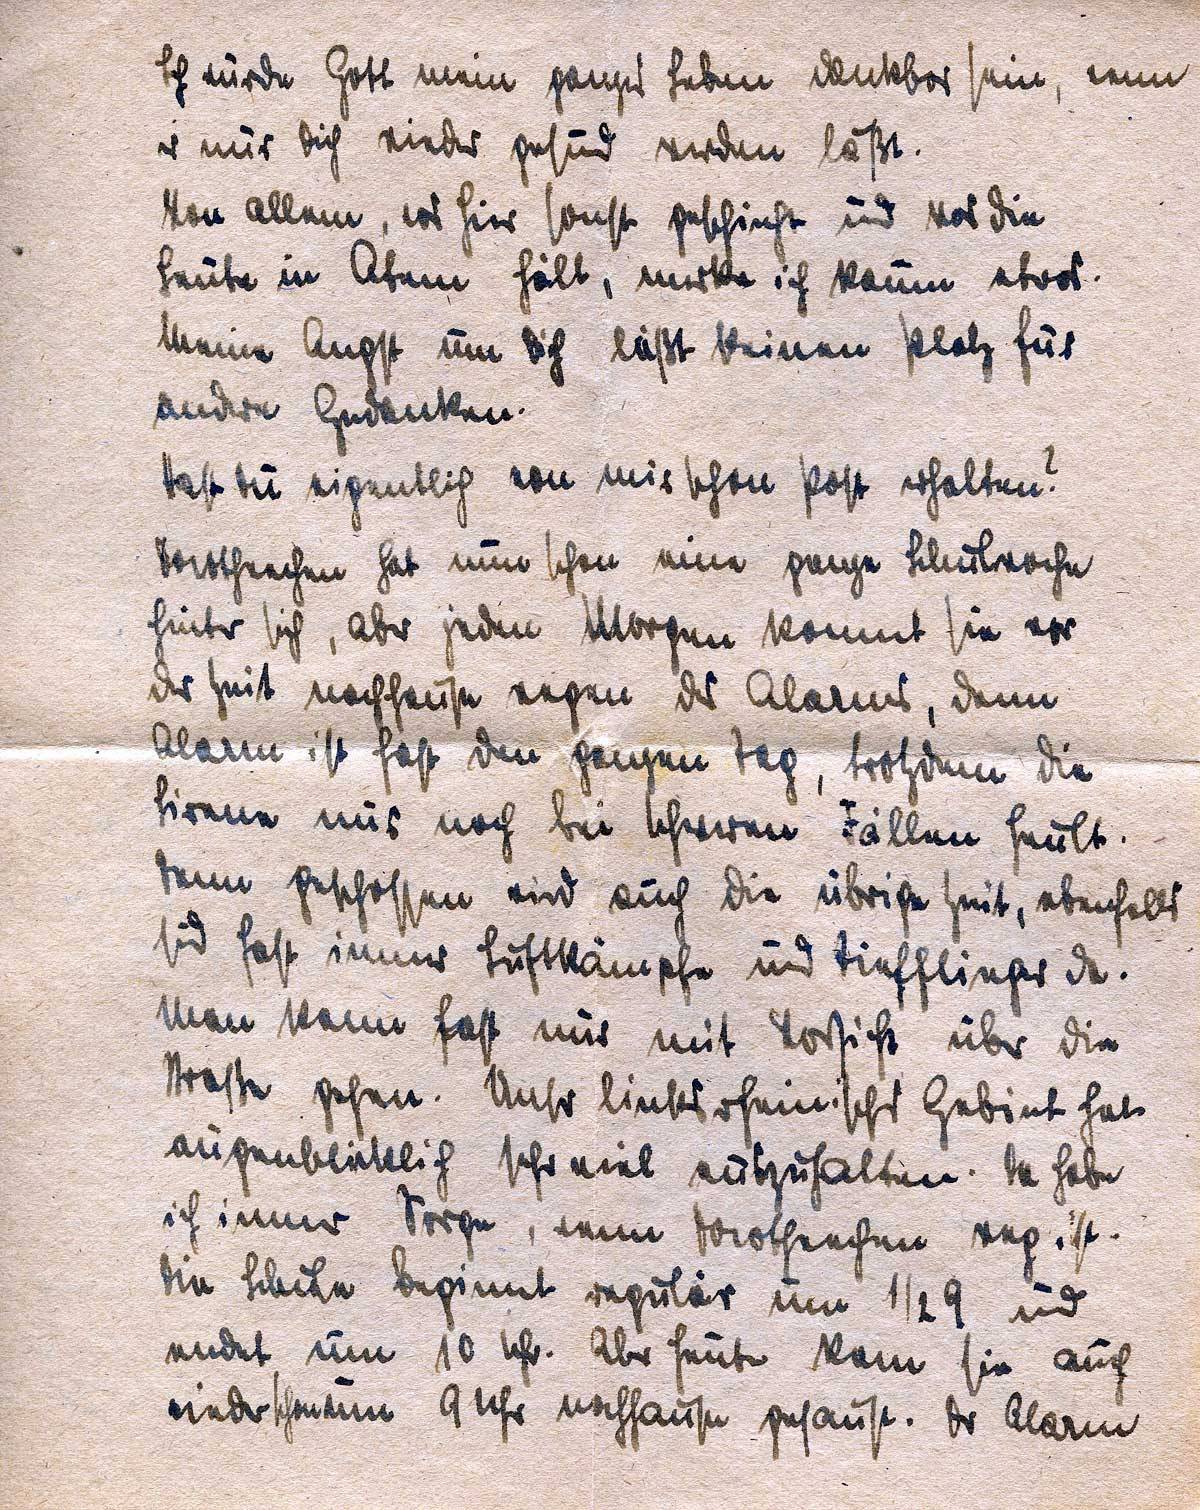 Ich würde Gott mein ganzes Leben dankbar sein, wenn
er nur Dich wieder gesund werden läßt.
Von allem, was hier sonst geschieht und was die
Leute in Atem hält, merke ich kaum etwas.
Meine Angst um Dich läßt keinen Platz für
andere Gedanken.
Hast Du eigentlich von mir schon Post erhalten?
Dorotheechen hat nun schon eine ganze Schulwoche
hinter sich, aber jeden Morgen kommt sie vor
der Zeit nachhause wegen des Alarms, denn
Alarm ist fast den ganzen Tag, trotzdem die
Sirene nur noch bei schweren Fällen heult.
Denn geschossen wird auch die übrige Zeit, ebenfalls
sind fast immer Luftkämpfe und Tiefflieger da.
Man kann fast nur mit Vorsicht über die
Straße gehen. Unser linksrheinisches Gebiet hat
augenblicklich sehr viel auszuhalten. Da habe
ich immer Sorge, wenn Dorotheechen weg ist.
Die Schule beginnt regulär um 1/2 9 und
endet um 10 Uhr. Aber heute kam sie auch
wieder schon um 9 Uhr nachhause gesaust. Der Alarm